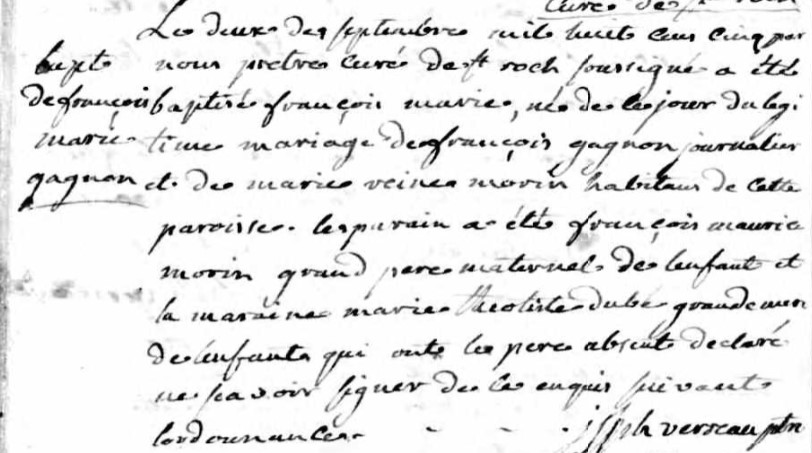 curé de st roch
Le deux de septembre mil huit cens cinq par
bapt nous pretre curé de st roch soussigné a été
de françois baptisé françois marie, né de ce jour du legi
marie time mariage de françois gagnon journalier
gagnon et de marie reine morin habitans de cette
paroisse. le parain a été françois maurice
morin grand pere maternel de lenfant et
la maraine marie theotiste dubé grande mere
de lenfant qui ont le pere absent declaré
ne savoir signer de ce enquis suivant
lordonnance - - - jsph verreau ptre